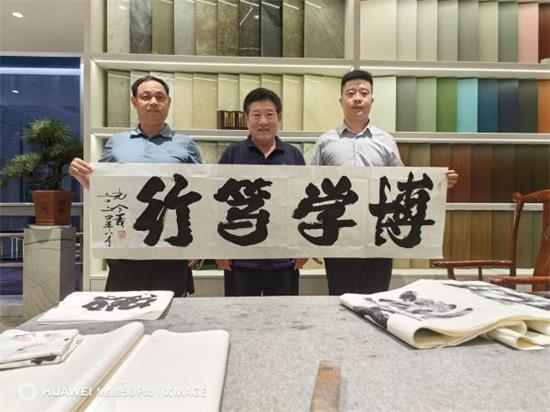 博学笃行
HUAWEI Mate50 Pro | XMAGE